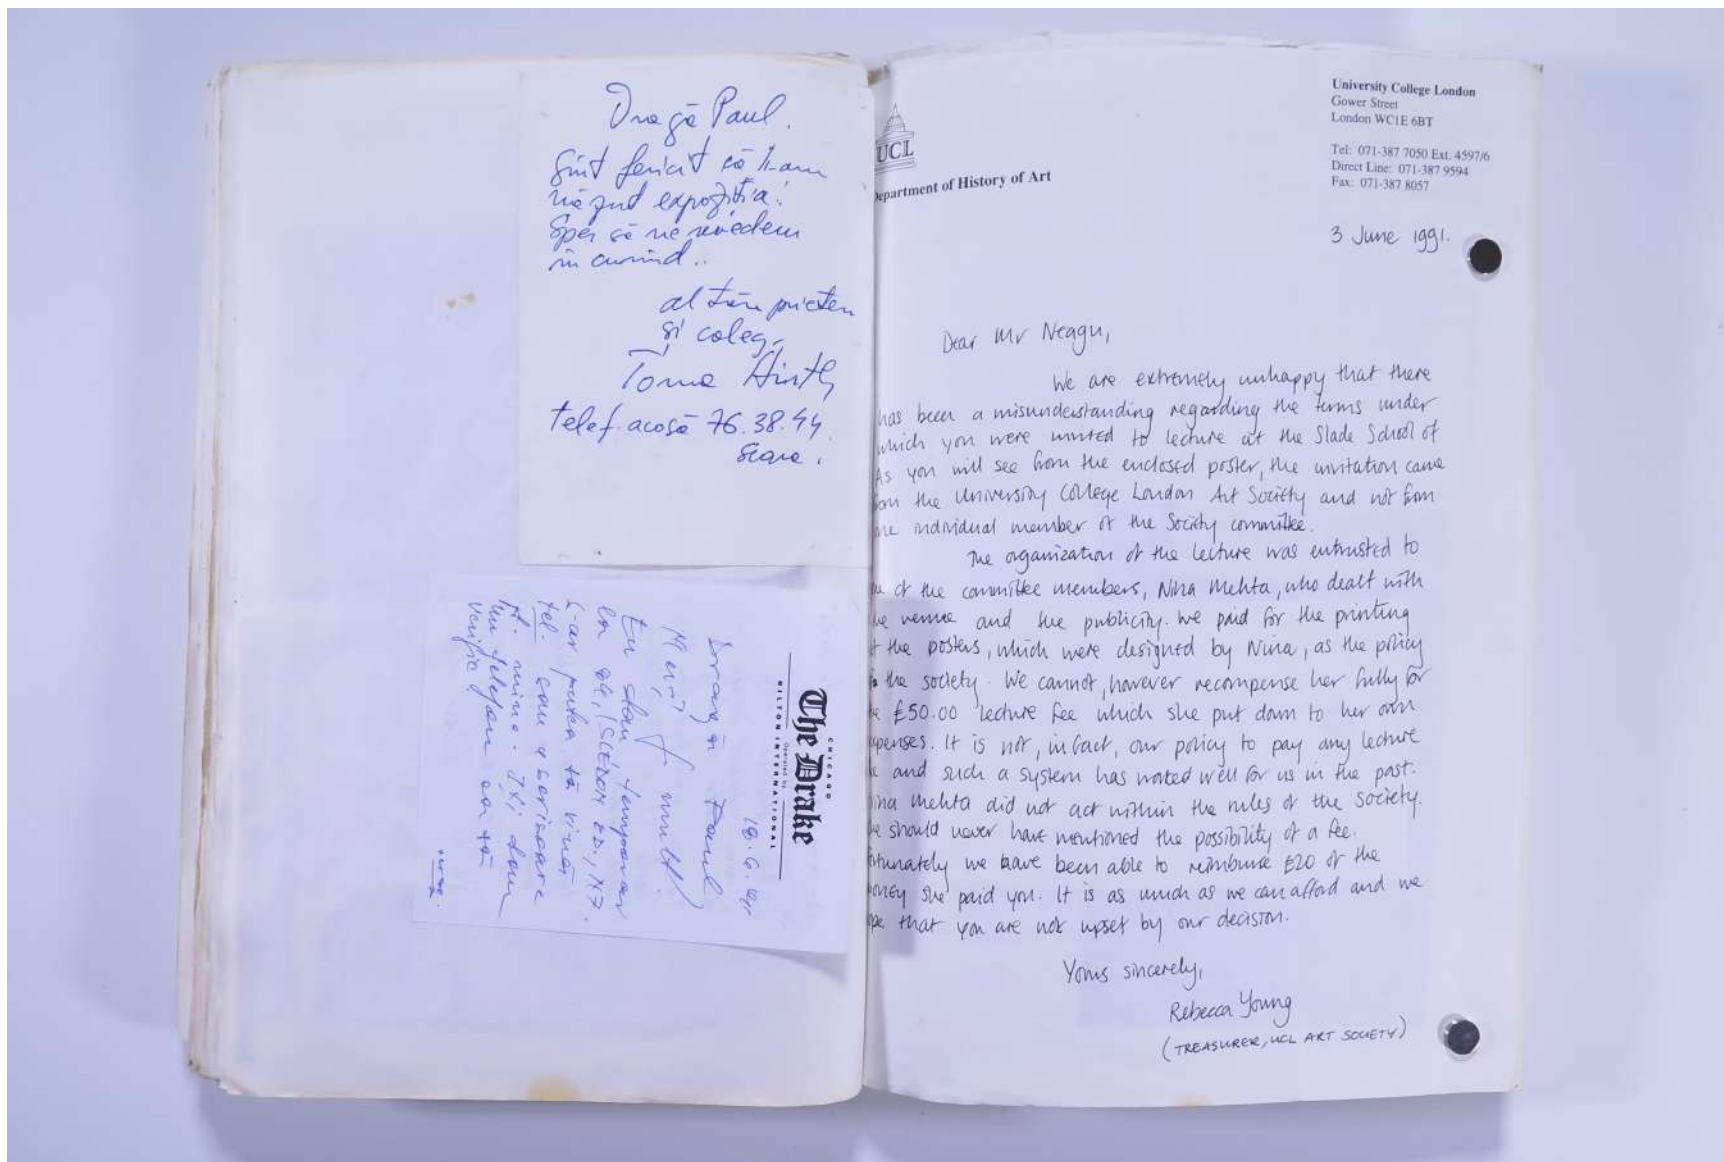 Dragă Paul.
Sînt fericit că ți-am
văzut expoziția!
Sper să ne revedem
în curînd..
al tău prieten
și coleg,
Toma
telef. acasă 76.38.44.
seara.
CHICAGO
The Drake
Operated by
HILTON INTERNATIONAL
18.6.91
Dragă Paul
Merçi mult!
Eu stau temporar
la
s-ar putea să vină
tel. sau
pt. mine. Îți dau
un telefon ca să
verific.
UCL
Department of History of Art
University College London
Gower Street
London WC1E 6BT
Tel: 071-387 7050 Ext. 4597/6
Direct Line: 071-387 9594
Fax: 071-387 8057
3 June 1991.
Dear Mr Neagu,
We are extremely unhappy that there
has been a misunderstanding regarding the terms under
which you were invited to lecture at the Slade School of
As you will see from the enclosed poster, the invitation came
from the University College London Art Society and not from
one individual member of the Society committee.
The organization of the lecture was entrusted to
one of the committee members, Nina Mehta, who dealt with
the venue and the publicity. We paid for the printing
of the posters, which were designed by Nina, as the policy
the society. We cannot, however recompense her fully for
the £50.00 lecture fee which she put down to her own
expenses. It is not, in fact, our policy to pay any lecture
fee and such a system has worked well for us in the past.
Nina Mehta did not act within the rules of the Society.
She should never have mentioned the possibility of a fee.
Fortunately we have been able to reimburse £20 of the
money she paid you. It is as much as we can afford and we
hope that you are not upset by our decision.
Yours sincerely,
Rebecca Young
(TREASURER, UCL ART SOCIETY)